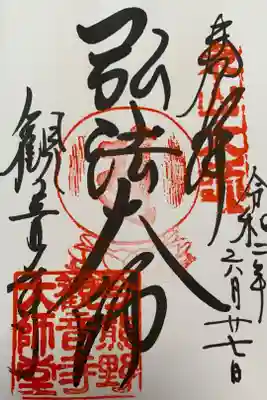 奉拝
令和二年
六月廿七日
弘法大師
観音寺
熊野
観音寺
大師堂